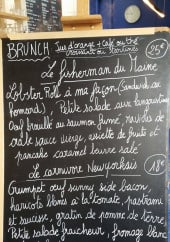 BRUNCH Jus d'orange + Café ou thé
Morissini ou Martines 25€
Le fisherman du Maine
Lobster Roll à ma façon (Sandwich au
Homard), Petite salade aux langoustines
Oeuf brouillé au saumon fumé, radis de
crabe sauce vierge, assiette de fruits et
pancake caramel beurre salé
Le carnivore Newyorkais 18€
Crumpet oeuf sunny side bacon,
haricots blancs à la tomate, pastrami
et saucisse, gratin de pomme de terre,
Petite salade fraicheur, fromage blanc